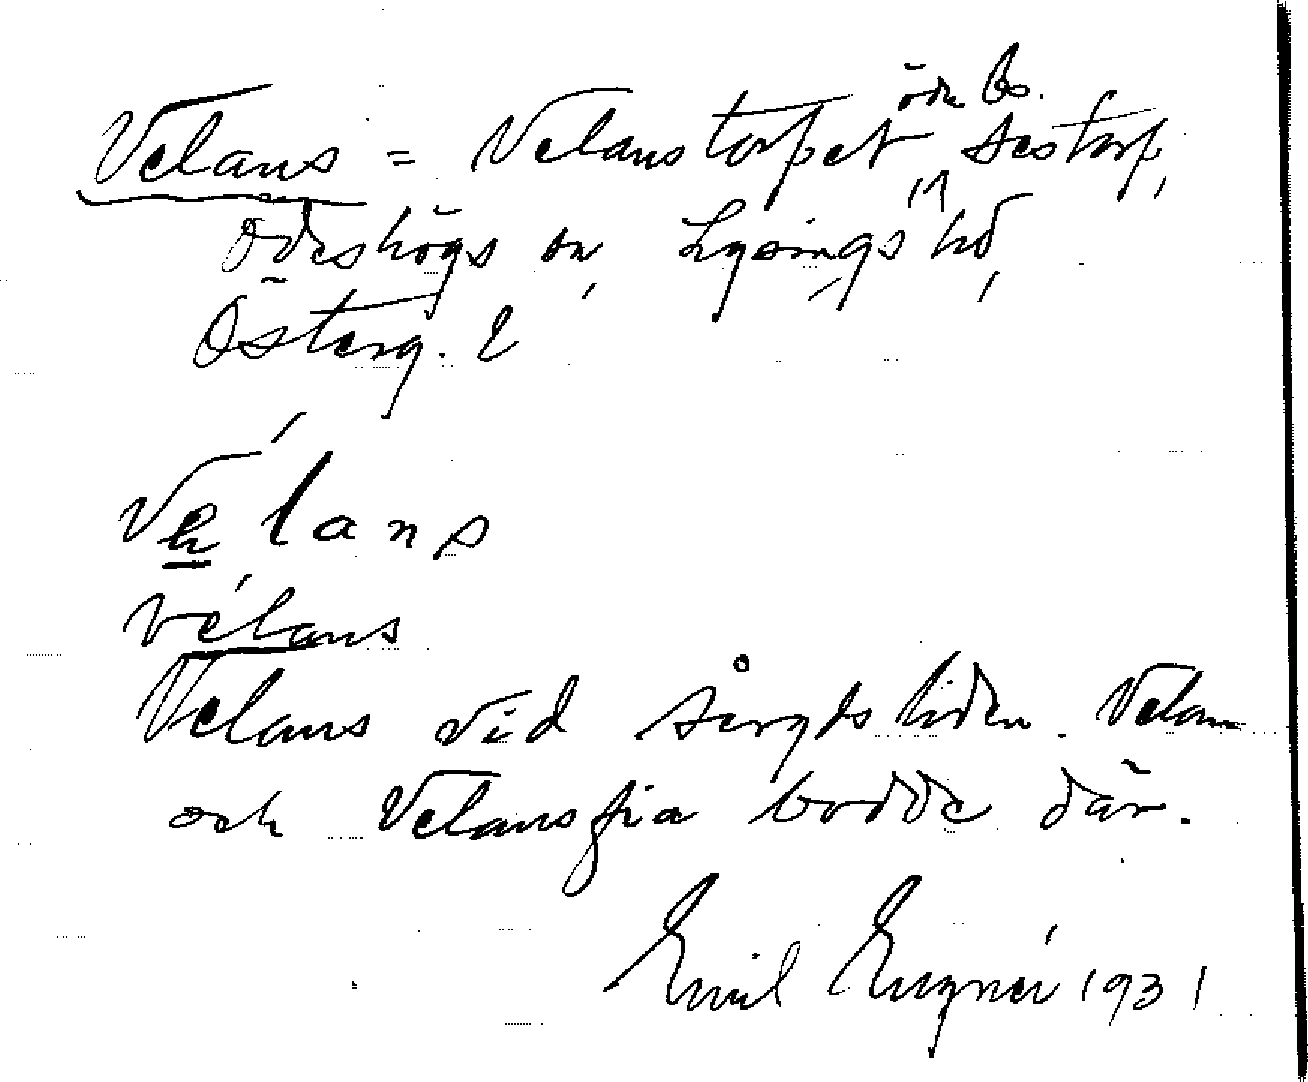 öde bs.
Velans = Velanstorpet Sestorp,
Ödeshögs sn, Lysings hd,
Österg. l
Velans
vélans
Velans vid Bergdsliden. Velam
och Velansfia bodde där.
Emil Engnér 1931